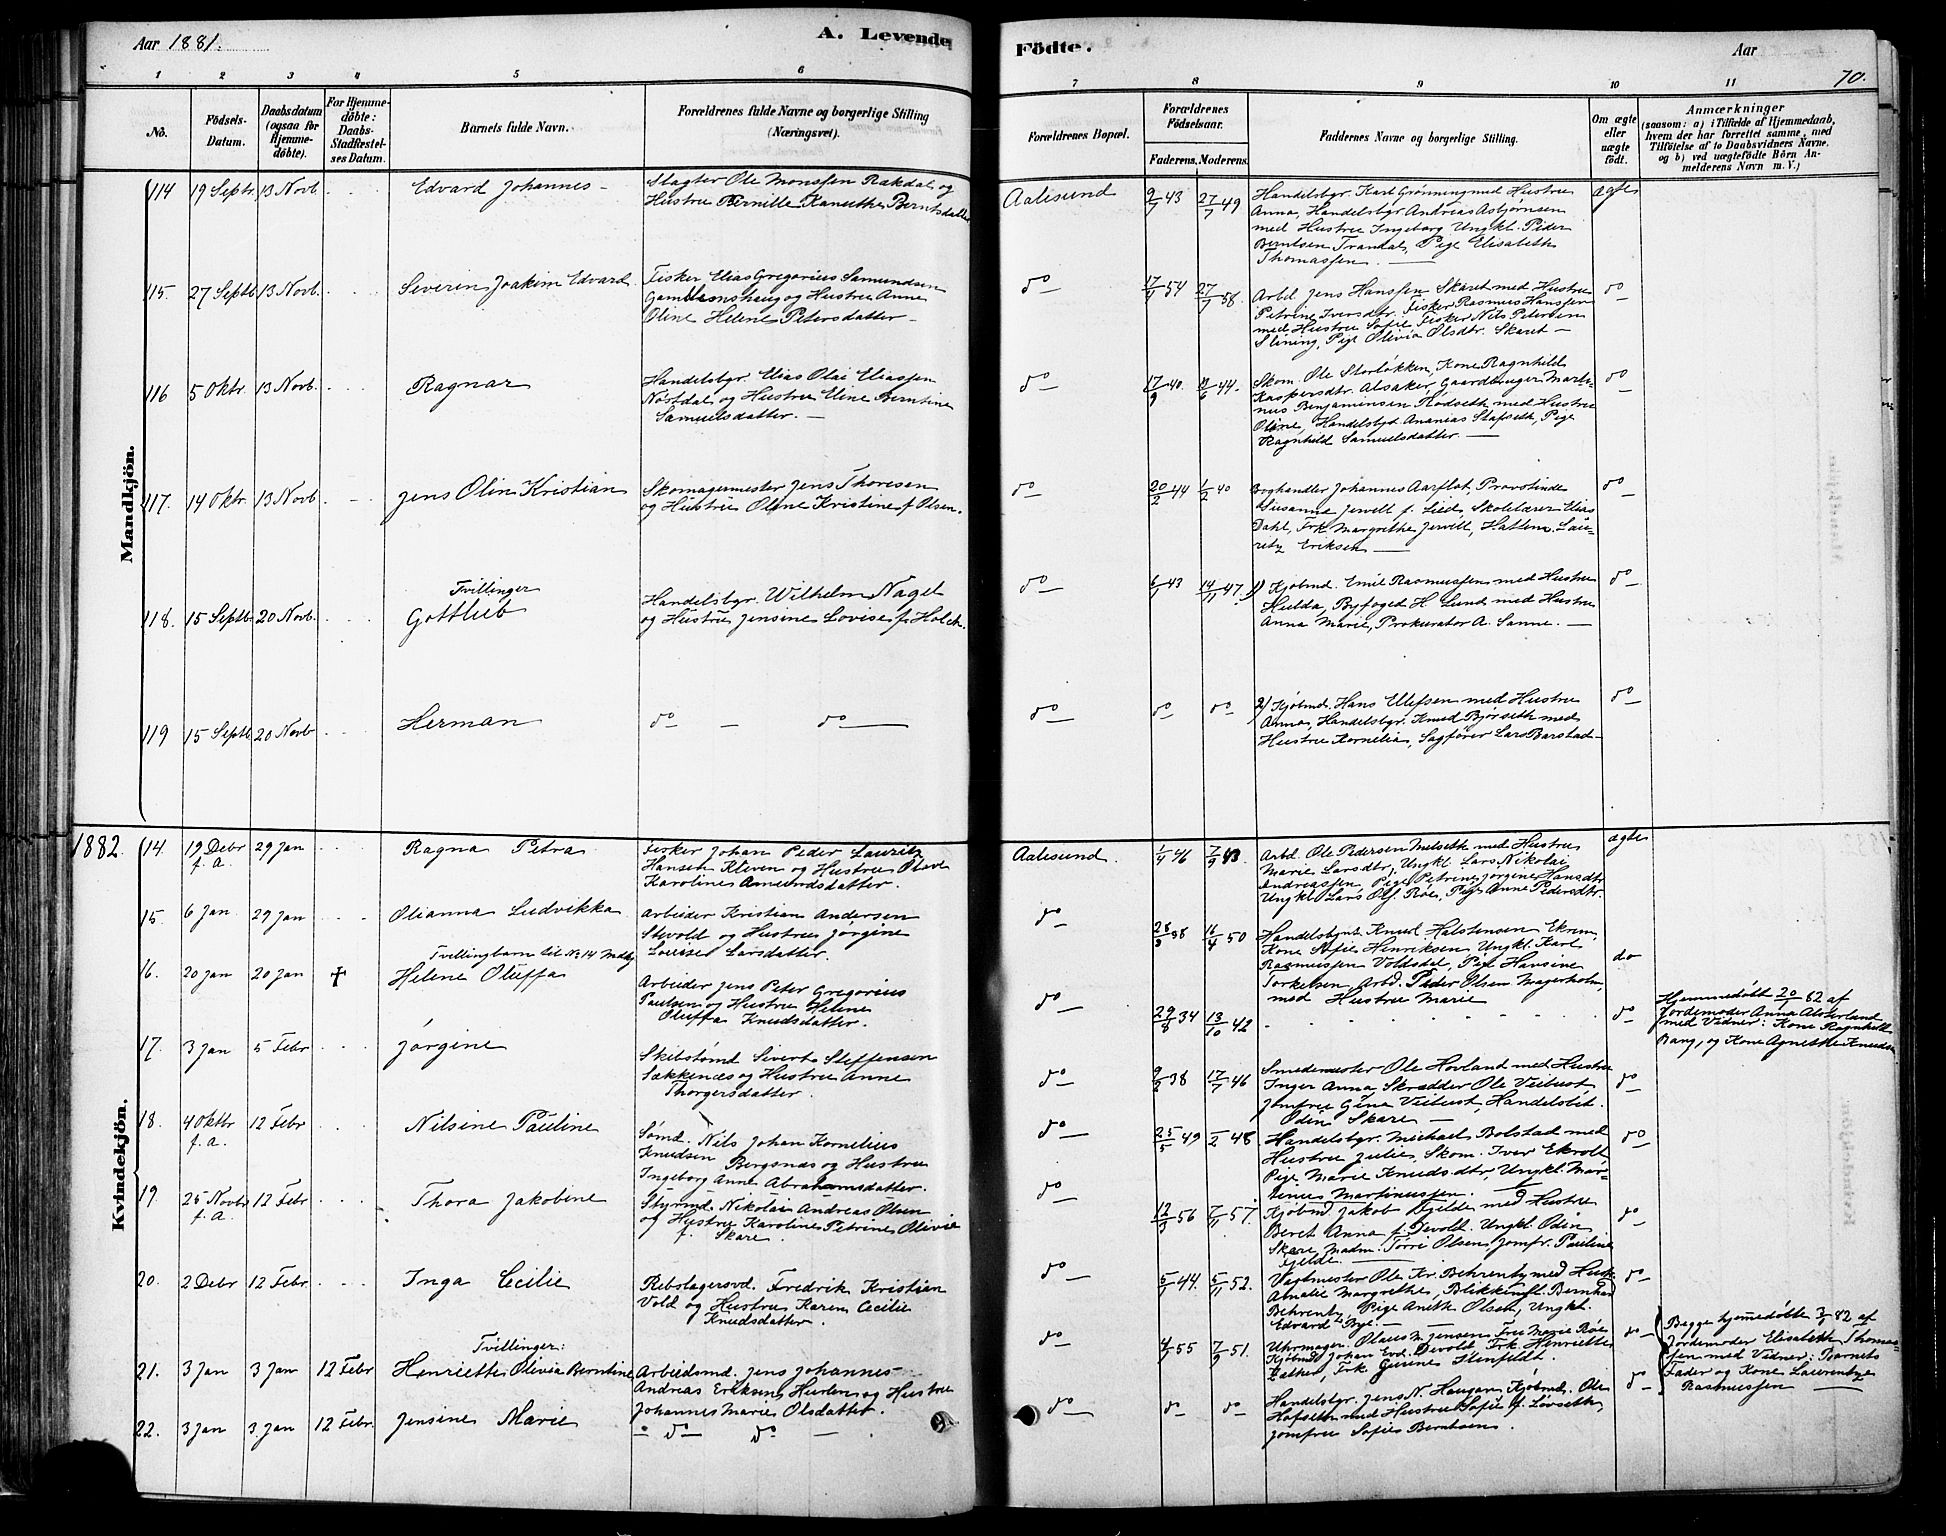 Aar 1881.
A. Levende
Födte.
Aar
70.
1 2 3 4 5 6 7 8 9 10 11
No.
Födsels-Datum.
Daabsdatum (ogsaa for Hjemme-döbte).
For Hjemme-döbte: Daabs-Stadfæstel-ses Datum.
Barnets fulde Navn.
Forældrenes fulde Navne og borgerlige Stilling (Næringsvei).
Forældrenes Bopæl.
Forældrenes Födselsaar.
Faderens. Moderens.
Faddernes Navne og borgerlige Stilling.
Om ægte eller uægte födt.
Anmærkninger
(saasom: a) i Tilfælde af Hjemmedaab, hvem der har forrettet samme, med Tilföielse af to Daabsvidners Navne. og b) ved uægtefödte Börn An-melderens Navn m. V.)
Mandkjön.
114 19 Septr. 13 Novb. Edvard Johannes
Slagter Ole Monssen Rakdal og
Hustru Bernille Kanutha Berntsdatter
Aalesund 9/7 43 27/7 49
Handelsbgr. Karl Grønning med Hustru
Anna, Handelsbgr Andreas Asbjørnsen
med Hustru Ingeborg Ungkl. Peder
Berntsen Trandal, Pige Elisabeth
Thomassen.
ægte
115. 27 Septb. 13 Novb. Severin Joakim Edvard
Fisker Elias Gregorius Samundsen
Gamlemshaug og Hustru Anne
Oline Helene Petersdatter
do 17/4 54 27/7 58.
Arbd Jens Hanssen Skaret med Hustru
Petrine Iversdtr. Fisker Rasmus Hanssen
med Hustru Sofie Fisker Nils Petersen
Slining, Pige Olivia Olsdtr. Skaret
do
116 5 Oktr. 13 Novb. Ragnar
Handelsbgr. Elias Olai Eliassen
Nöstdal og Hustru Eline Berntine
Samuelsdatter.
do 17/9 40. 11/6 44.
Skom. Ole Storløkken, Kone Ragnhild
Kaspersdtr. Alsaker, Gaardbruger Marti-
nus Benjaminsen Rødseth med Hustru
Oline, Handelsbgt Ananias Stafseth, Pige
Ragnhild Samuelsdatter.
do
117. 14 Oktr. 13 Novb. Jens Olin Kristian
Skomagermester Jens Thoresen
og Hustru Oline Kristine f. Olsen.
do 20/2 44 1/2 40
Boghandler Johannes Aarflot, Provstinde
Susanne Jervell f. Lied, Skolelærer Elias
Dahl, Frk Margrethe Jervell, Hattem. Lau-
ritz Eriksen
do
Tvillinger
118. 15 Septb. 20 Novb. Gottlieb
Handelsbgr. Wilhelm Nagel
og Hustru Jensine Lovise f. Holck.
do 6/1 43 14/11 47.
1) Kjøbmd. Emil Rasmussen med Hustru
Hulda, Byfoged H. Lund med Hustru
Anna Marie, Prokurator A. Sanne.
do
119 15 Septb. 20 Novb Herman
do do
do do do
2) Kjøbmd. Hans Ellefsen med Hustru
Anna, Handelsbgr. Knud Bjørseth med
Hustru Kornelia, Sagfører Lars Barstad
do
1882.
Kvindekjön.
14. 19 Debr f. a. 29 Jan Ragna Petra
Fisker Johan Peder Lauritz
Hansen Kleven og Hustru Olave
Karoline Amundsdatter.
Aalesund. 1/4 46 7/9 43
Arbd. Ole Pedersen Melseth med Hustru
Marie Larsdtr, Ungkl. Lars Nikolai
Andreassen, Pige Petrine Jørgine Hansdtr
Ungkl Lars Olf. Røe, Pige Anne Pedersdtr.
ægte
15. 6 Jan 29 Jan Olianna Ludvikka
Arbeider Kristian Andersen
Stevold og Hustru Jørgine
Lovise Larsdatter.
do 28/3 38 16/4 50
Handelsbgt. Knud Halstensen Ekrem,
Kone Sofie Henriksen Ungkl. Karl
Rasmussen Voldsdal, Pige Hansine
Torkelsen, Arbd. Peder Olsen Magerholm,
med Hustru Marie
do
Tvillingbarn til No 14 Mandkj
16. 20 Jan 20 Jan + Helene Oluffa
Arbeider Jens Peter Gregorius
Paulsen og Hustru Helene
Oluffa Knudsdatter.
do 29/8 34 13/10 42
do
Hjemmedøbt 20/1 82 af
Jordemoder Anna Alsterlund
med Vidner: Kone Ragnhild
Bang, og Kone Agnethe Knudsen
17. 3 Jan 5 Febr Jørgine
Skibstømd. Sivert Steffensen
Sækkenæs og Hustru Anne
Thorgersdatter.
do 9/2 38 17/7 46
Smedemester Ole Hovland med Hustru
Inger Anna Skrædder Ole Veibust
Jomfru Gina Veibust, Handelsbet.
Odin Skare
do
18. 4 Oktbr f. a. 12 Febr Nilsine Pauline
Sømd. Nils Johan Kornelius
Knudsen Bergsnæs og Hustru
Ingeborg Anne Abrahamsdatter.
do 25/5 49 1/2 48
Handelsbgr. Michael Bolstad med
Hustru Julie, Skom. Iver Ekroll
Pige Marie Knudsdtr, Ungkl. Mar-
tinus Martinussen.
do
19. 25 Novbr f. a. 12 Febr Thora Jakobine
Styrmd. Nikolai Andreas Olsen
og Hustru Karoline Petrine Olivie
f. Skare
do 12/3 56 7/11 57.
Kjøbmd Jakob Gjelde med Hustru
Beret Anna f. Devold. Ungkl. Odin
Skare, Madm. Tørre Olsen, Jomfr. Pauline
Gjelde.
do
20. 2 Debr 12 Febr. Inga Cecilie
Rebslagersvd. Fredrik Kristian
Vold og Hustru Karen Cecilie
Knudsdatter.
do 5/1 44. 5/11 52.
Vagtmester Ole Kr. Behrentz med Hust.
Amalie Margrethe, Blikkensl. Bernhard
Behrentz, Pige Aneth Olsen, Ungkl.
Edvard Bye.
do
Tvillinger:
21. 3 Jan 3 Jan 12 Febr Henriette Olivia Berntine
Arbeidsmd. Jens Johannes
Andreas Eriksen Hurlen og Hustru
Johannes Marie Olsdatter.
do 4/1 55 7/9 51.
Uhrmager Olaus M. Jensen Fru Marie Røe
Kjøbmd Johan Evd. Devold Frk Henriette
do
Begge hjemmedøbte 3/1 82 af
Jordemoder Elisabeth Thomas-
sen med Vidner: Barnets
Fader og Kone Laurentze
Rasmussen
22. 3 Jan 3. Jan 12 Febr. Jensine Marie
do do
do do do
Handelsbgr. Jens N. Haugan, Kjøbmd. Ole
Hafseth med Hustru Sofie f. Løvseth,
Jomfru Sofie Berntsen.
do